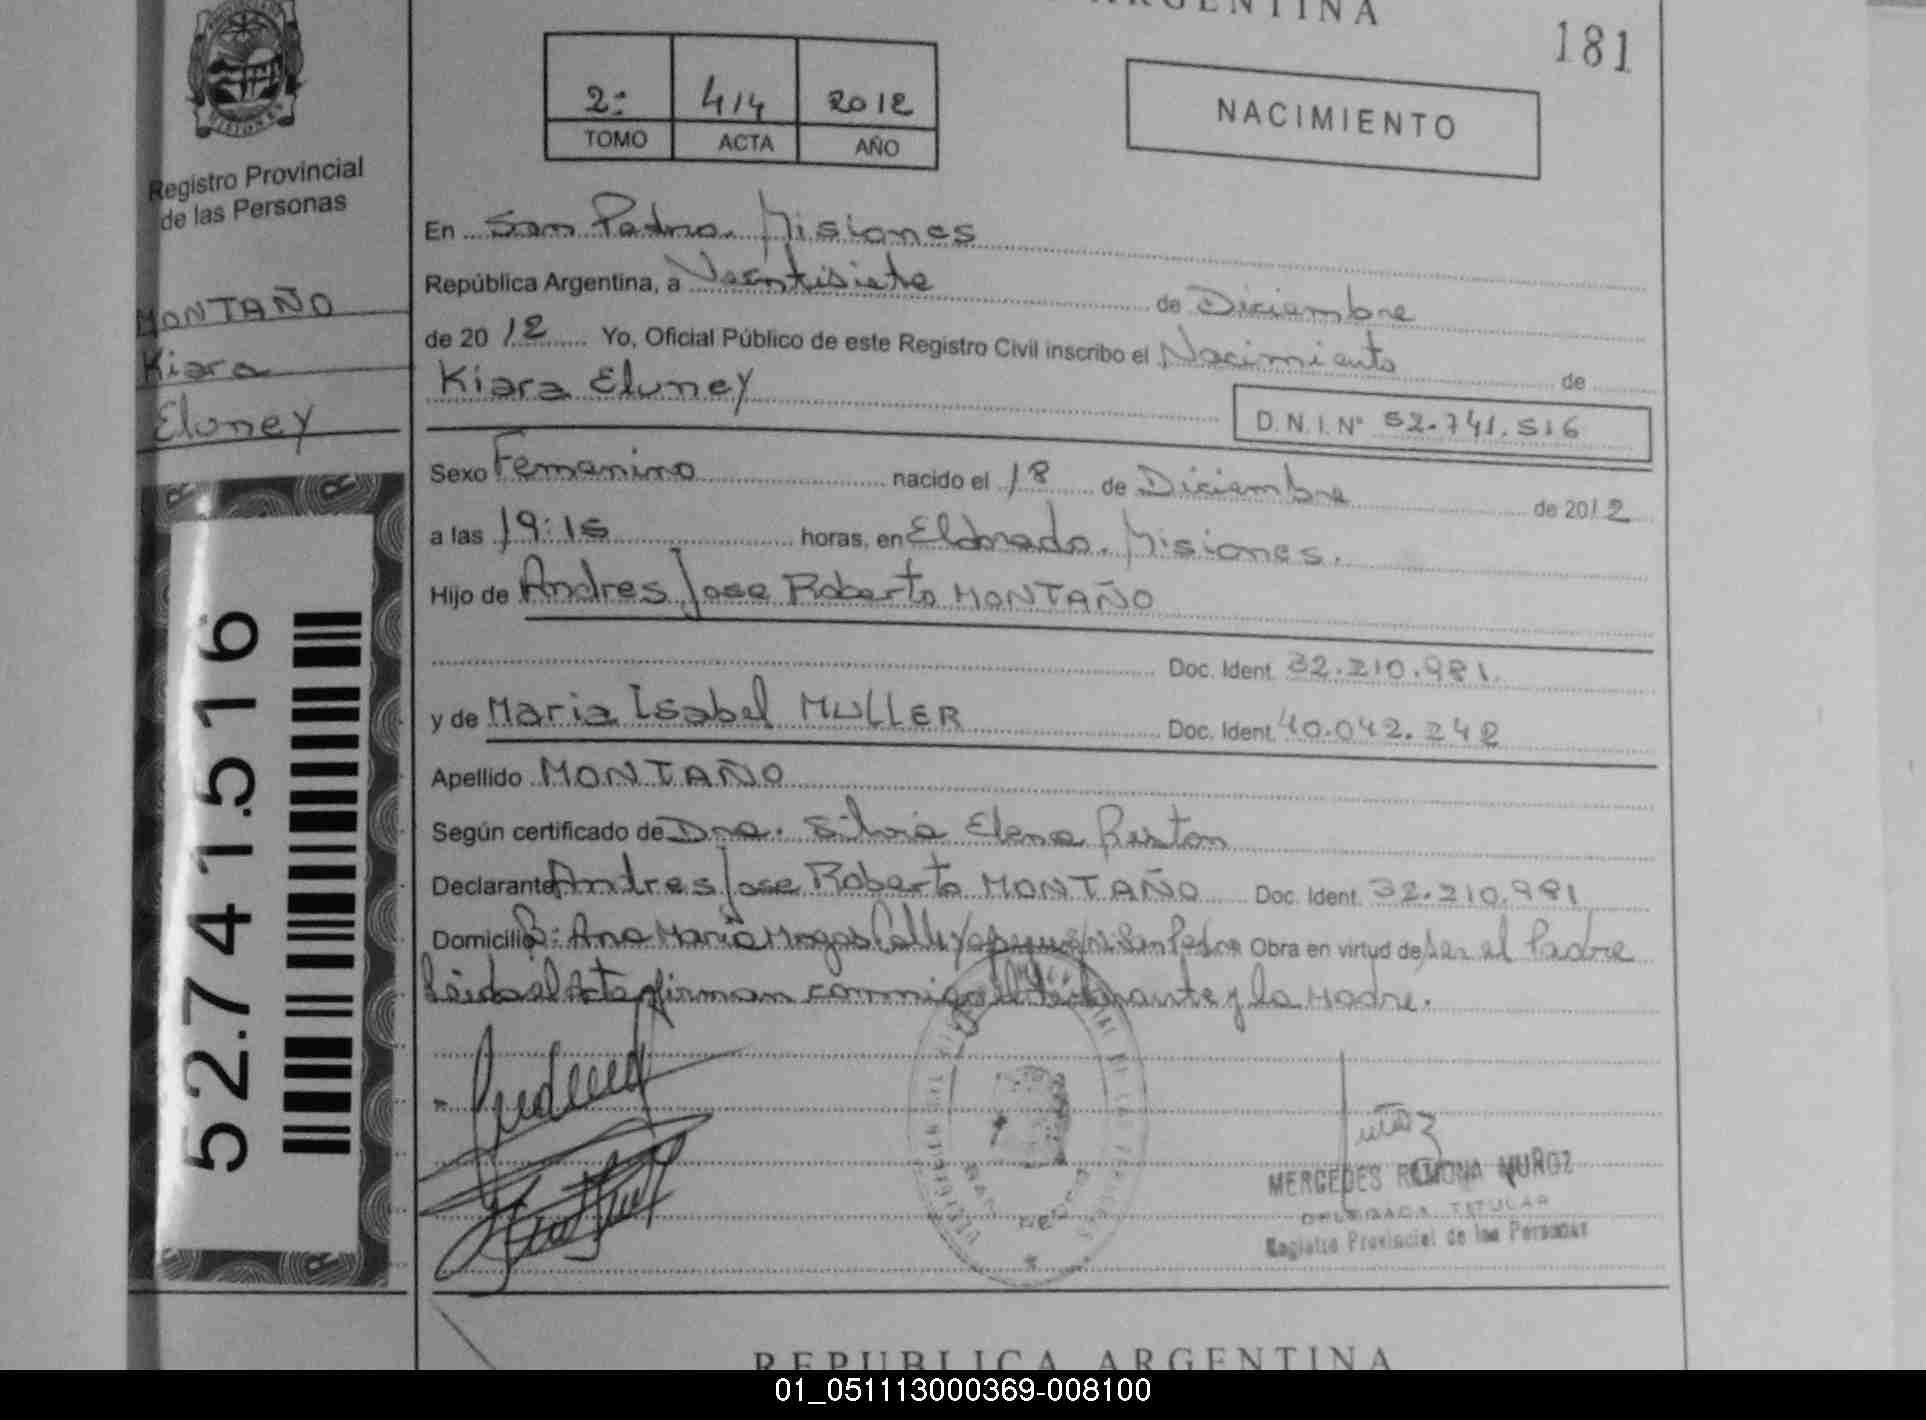 ARGENTINA
181
2º 414 2012
TOMO ACTA AÑO
NACIMIENTO
MISIONES
Registro Provincial
de las Personas
MONTAÑO
Kiara
Eluney
52.741.516
En San Pedro. Misiones
República Argentina, a Veintisiete de Diciembre
de 2012 Yo, Oficial Público de este Registro Civil inscribo el Nacimiento de
Kiara Eluney
D.N.I.Nº 52.741.516
Sexo Femenino nacido el 18 de Diciembre de 2012
a las 19:15 horas, en Eldorado. Misiones.
Hijo de Andres Jose Roberto MONTAÑO
Doc. Ident. 32.210.981.
y de Maria Isabel MULLER Doc. Ident. 40.042.242
Apellido MONTAÑO
Según certificado de Dra. Silvia Elena
Declarante Andres Jose Roberto MONTAÑO Doc. Ident. 32.210.981
Domicilio B: Ana Maria Mogas Calle Yapeyu S/N San Pedro Obra en virtud de ser el Padre
Leida el Acta firman conmigo el declarante y la Madre.
MERCEDES RAMONA MUÑOZ
DELEGADA TITULAR
Registro Provincial de las Personas
REPUBLICA ARGENTINA
01_051113000369-008100